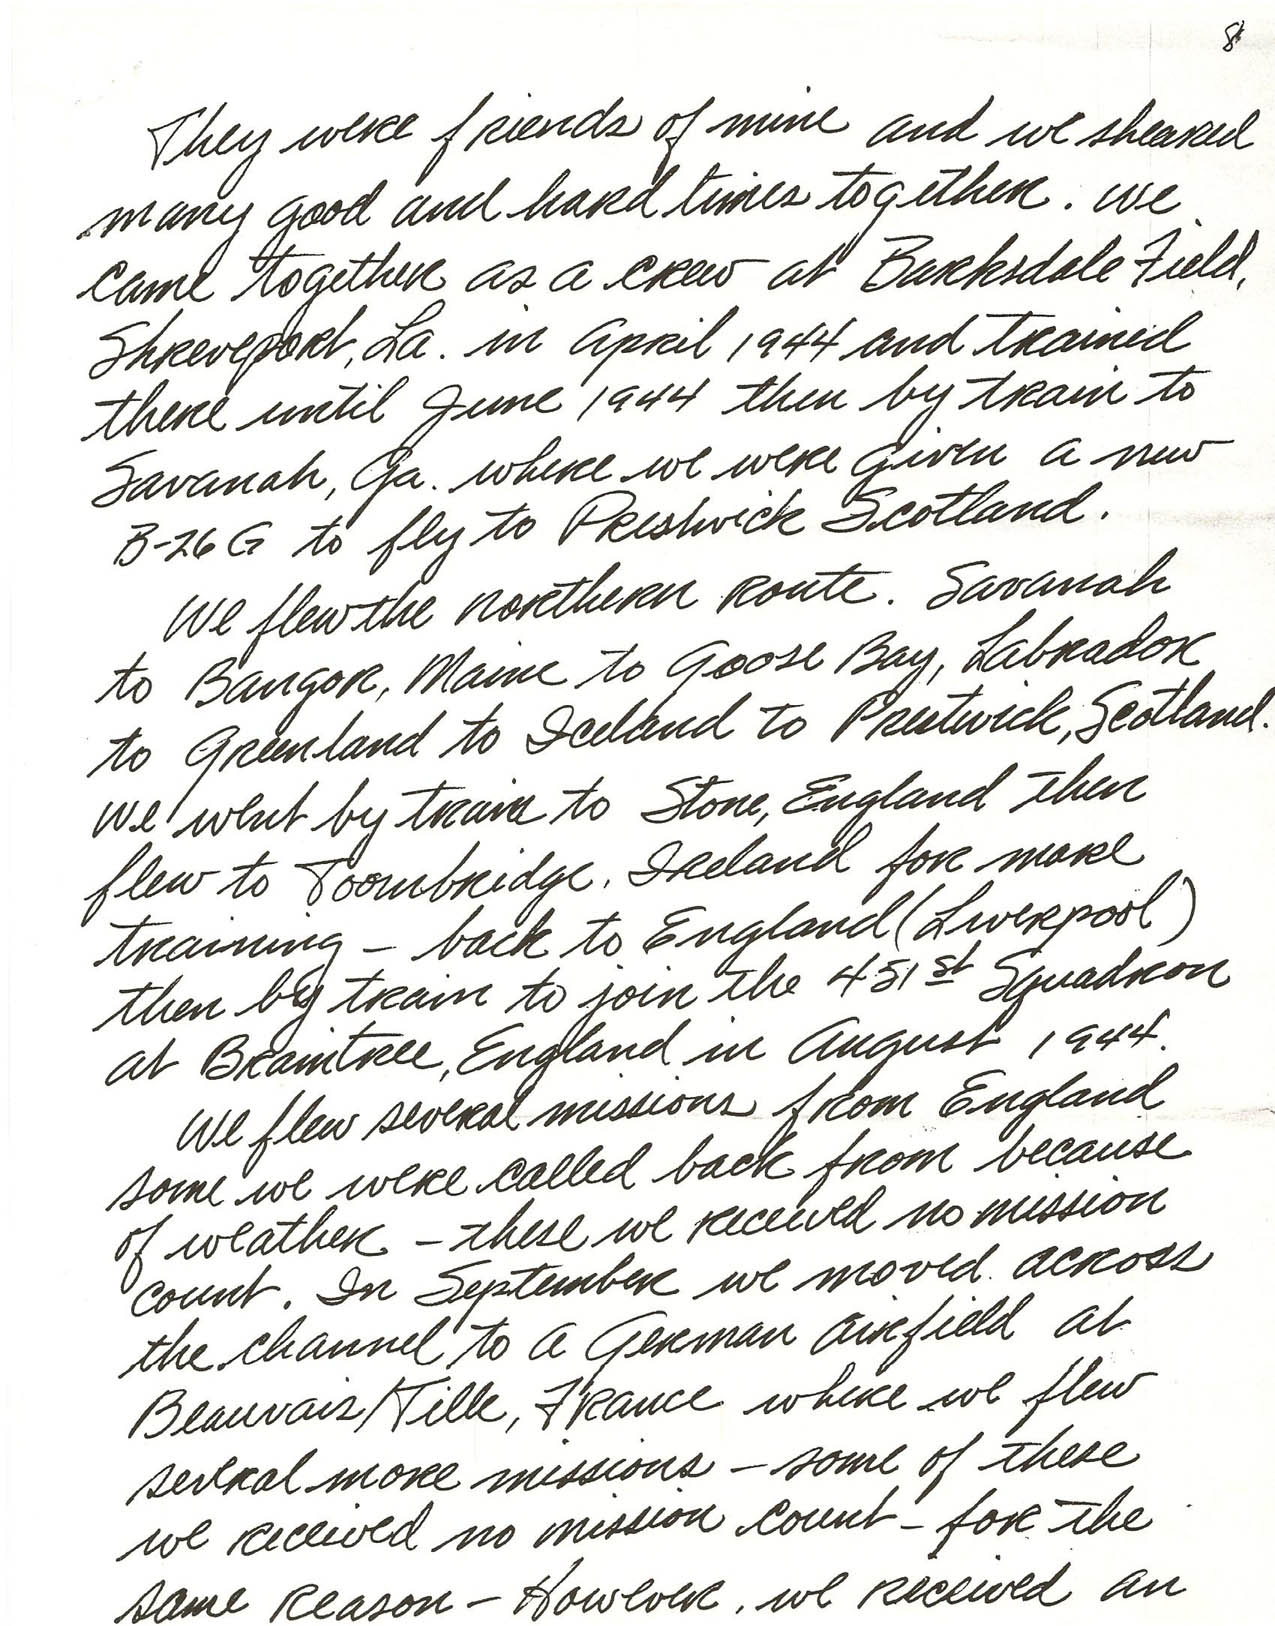 8
They were friends of mine and we sheared
many good and hard times together. We
came together as a crew at Barksdale Field,
Shreveport, La. in April 1944 and trained
there until June 1944 then by train to
Savanah, Ga. where we were given a new
B-26 G to fly to Prestwick Scotland.
We flew the northern route. Savanah
to Bangor, Maine to Goose Bay, Labrador
to Greenland to Iceland to Prestwick, Scotland.
We went by train to Stone, England then
flew to Toombridge, Ireland for more
training - back to England (Liverpool)
then by train to join the 451st Squadron
at Braintree, England in August 1944.
We flew several missions from England
some we were called back from because
of weather - these we received no mission
count. In September we moved across
the channel to a German airfield at
Beauvais/Tille, France where we flew
several more missions - some of these
we received no mission count - for the
same reason - However, we received an